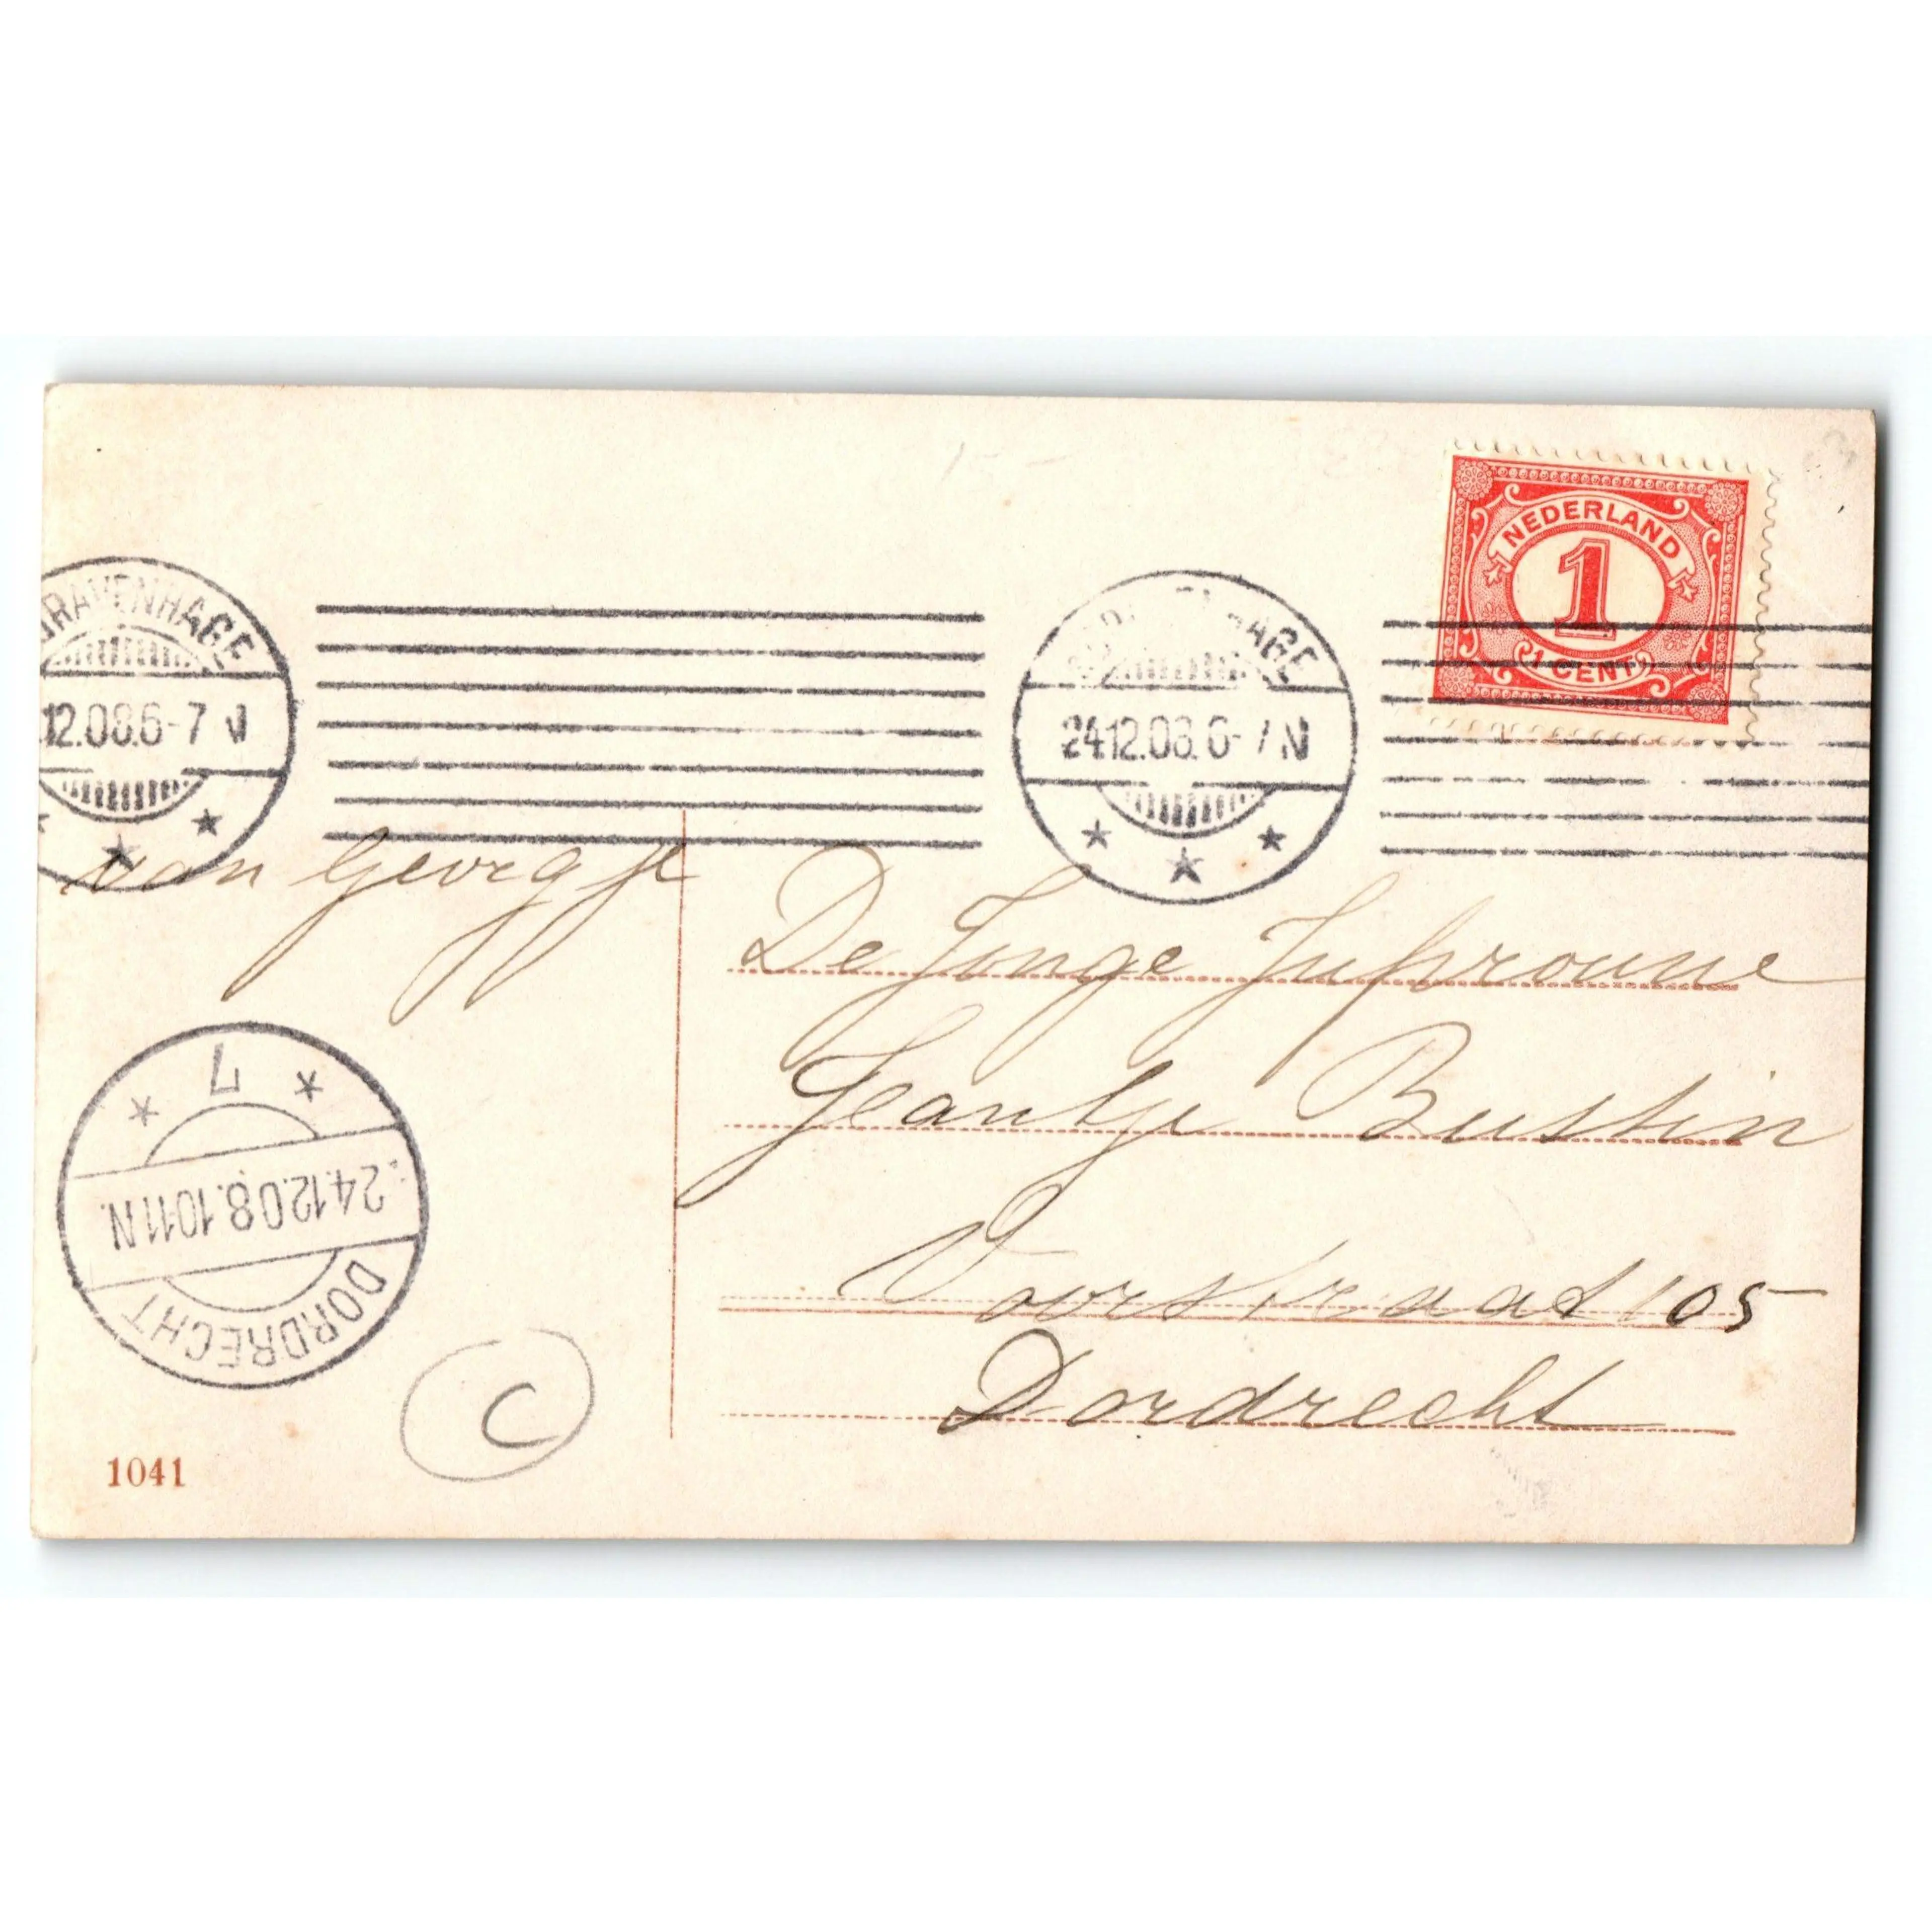 NEDERLAND
1
1 CENT
GRAVENHAGE
12.08.6-7 N
HAGE
24.12.08.6-7 N
van Georgje
De Jonge Jufvrouwe
Jeantje Bustin
Voorstraat 105
Dordrecht
7
24.12.08.10-11N.
DORDRECHT
C
1041